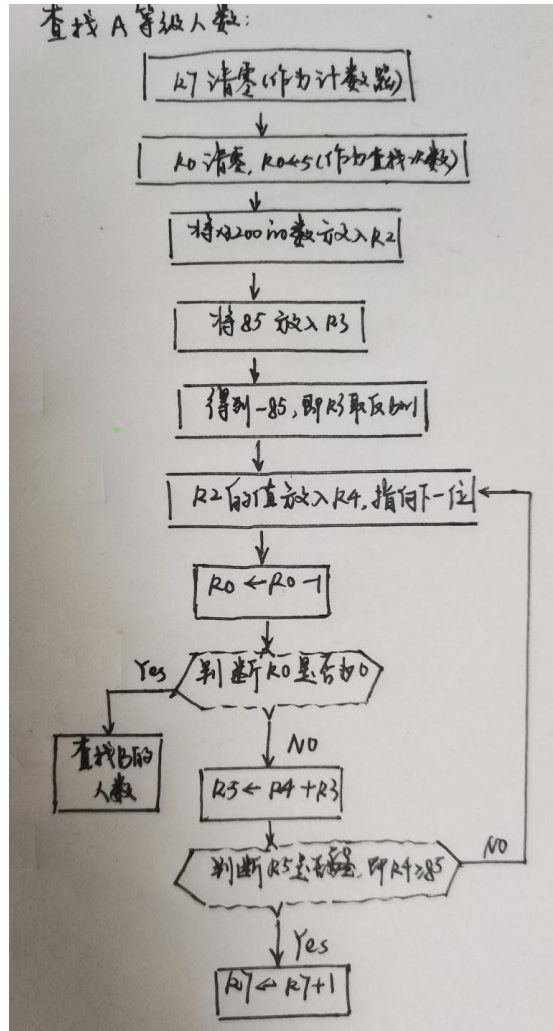 查找A等级人数:
R7清零(作为计数器)
R0清零,R0←5(作为查找次数)
将x3200的数放入R2
将85放入R3
得到-85,即R3取反加1
R2的值放入R4,指向下一位
R0←R0-1
判断R0是否为0
Yes
查找B的
人数
NO
R5←R4+R3
判断R5是否 即R4≥85
NO
Yes
R7←R7+1